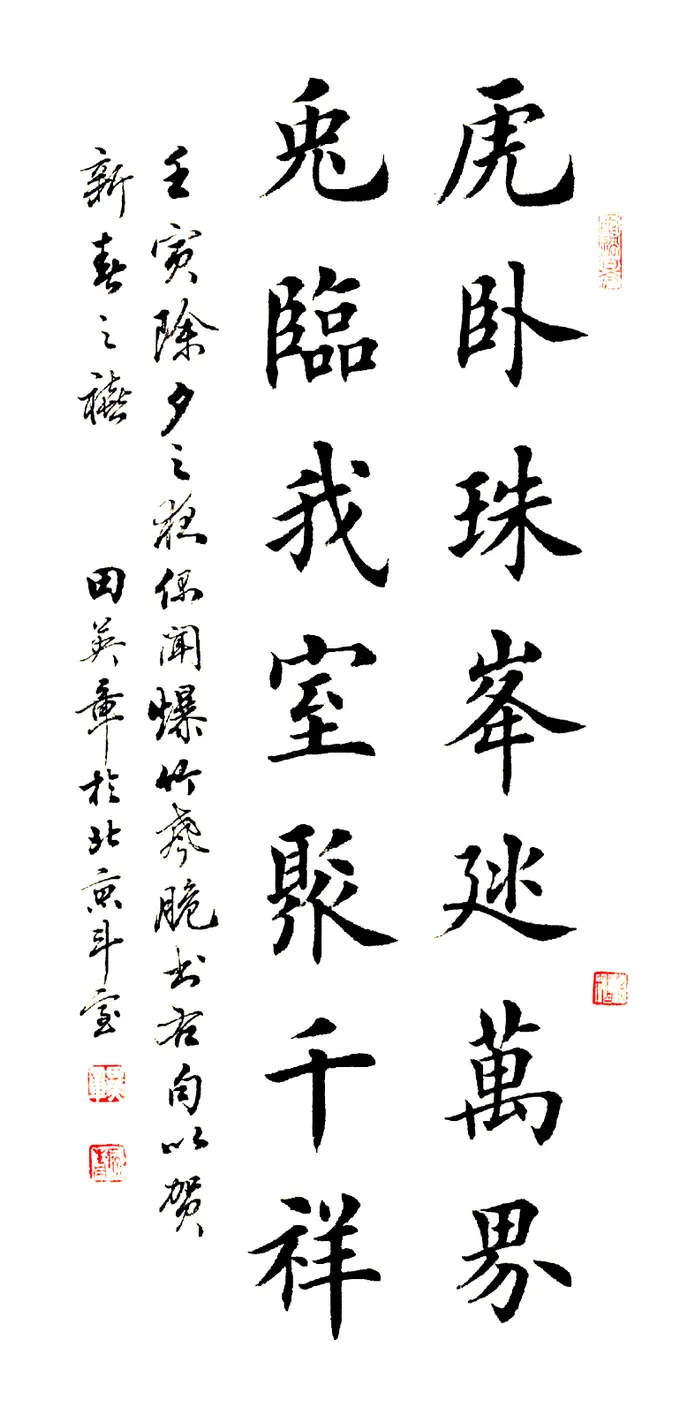 虎卧珠峯廵萬界
兔臨我室聚千祥
壬寅除夕之夜偶聞爆竹聲脆书右句以贺
新春之禧 田英章於北京斗室